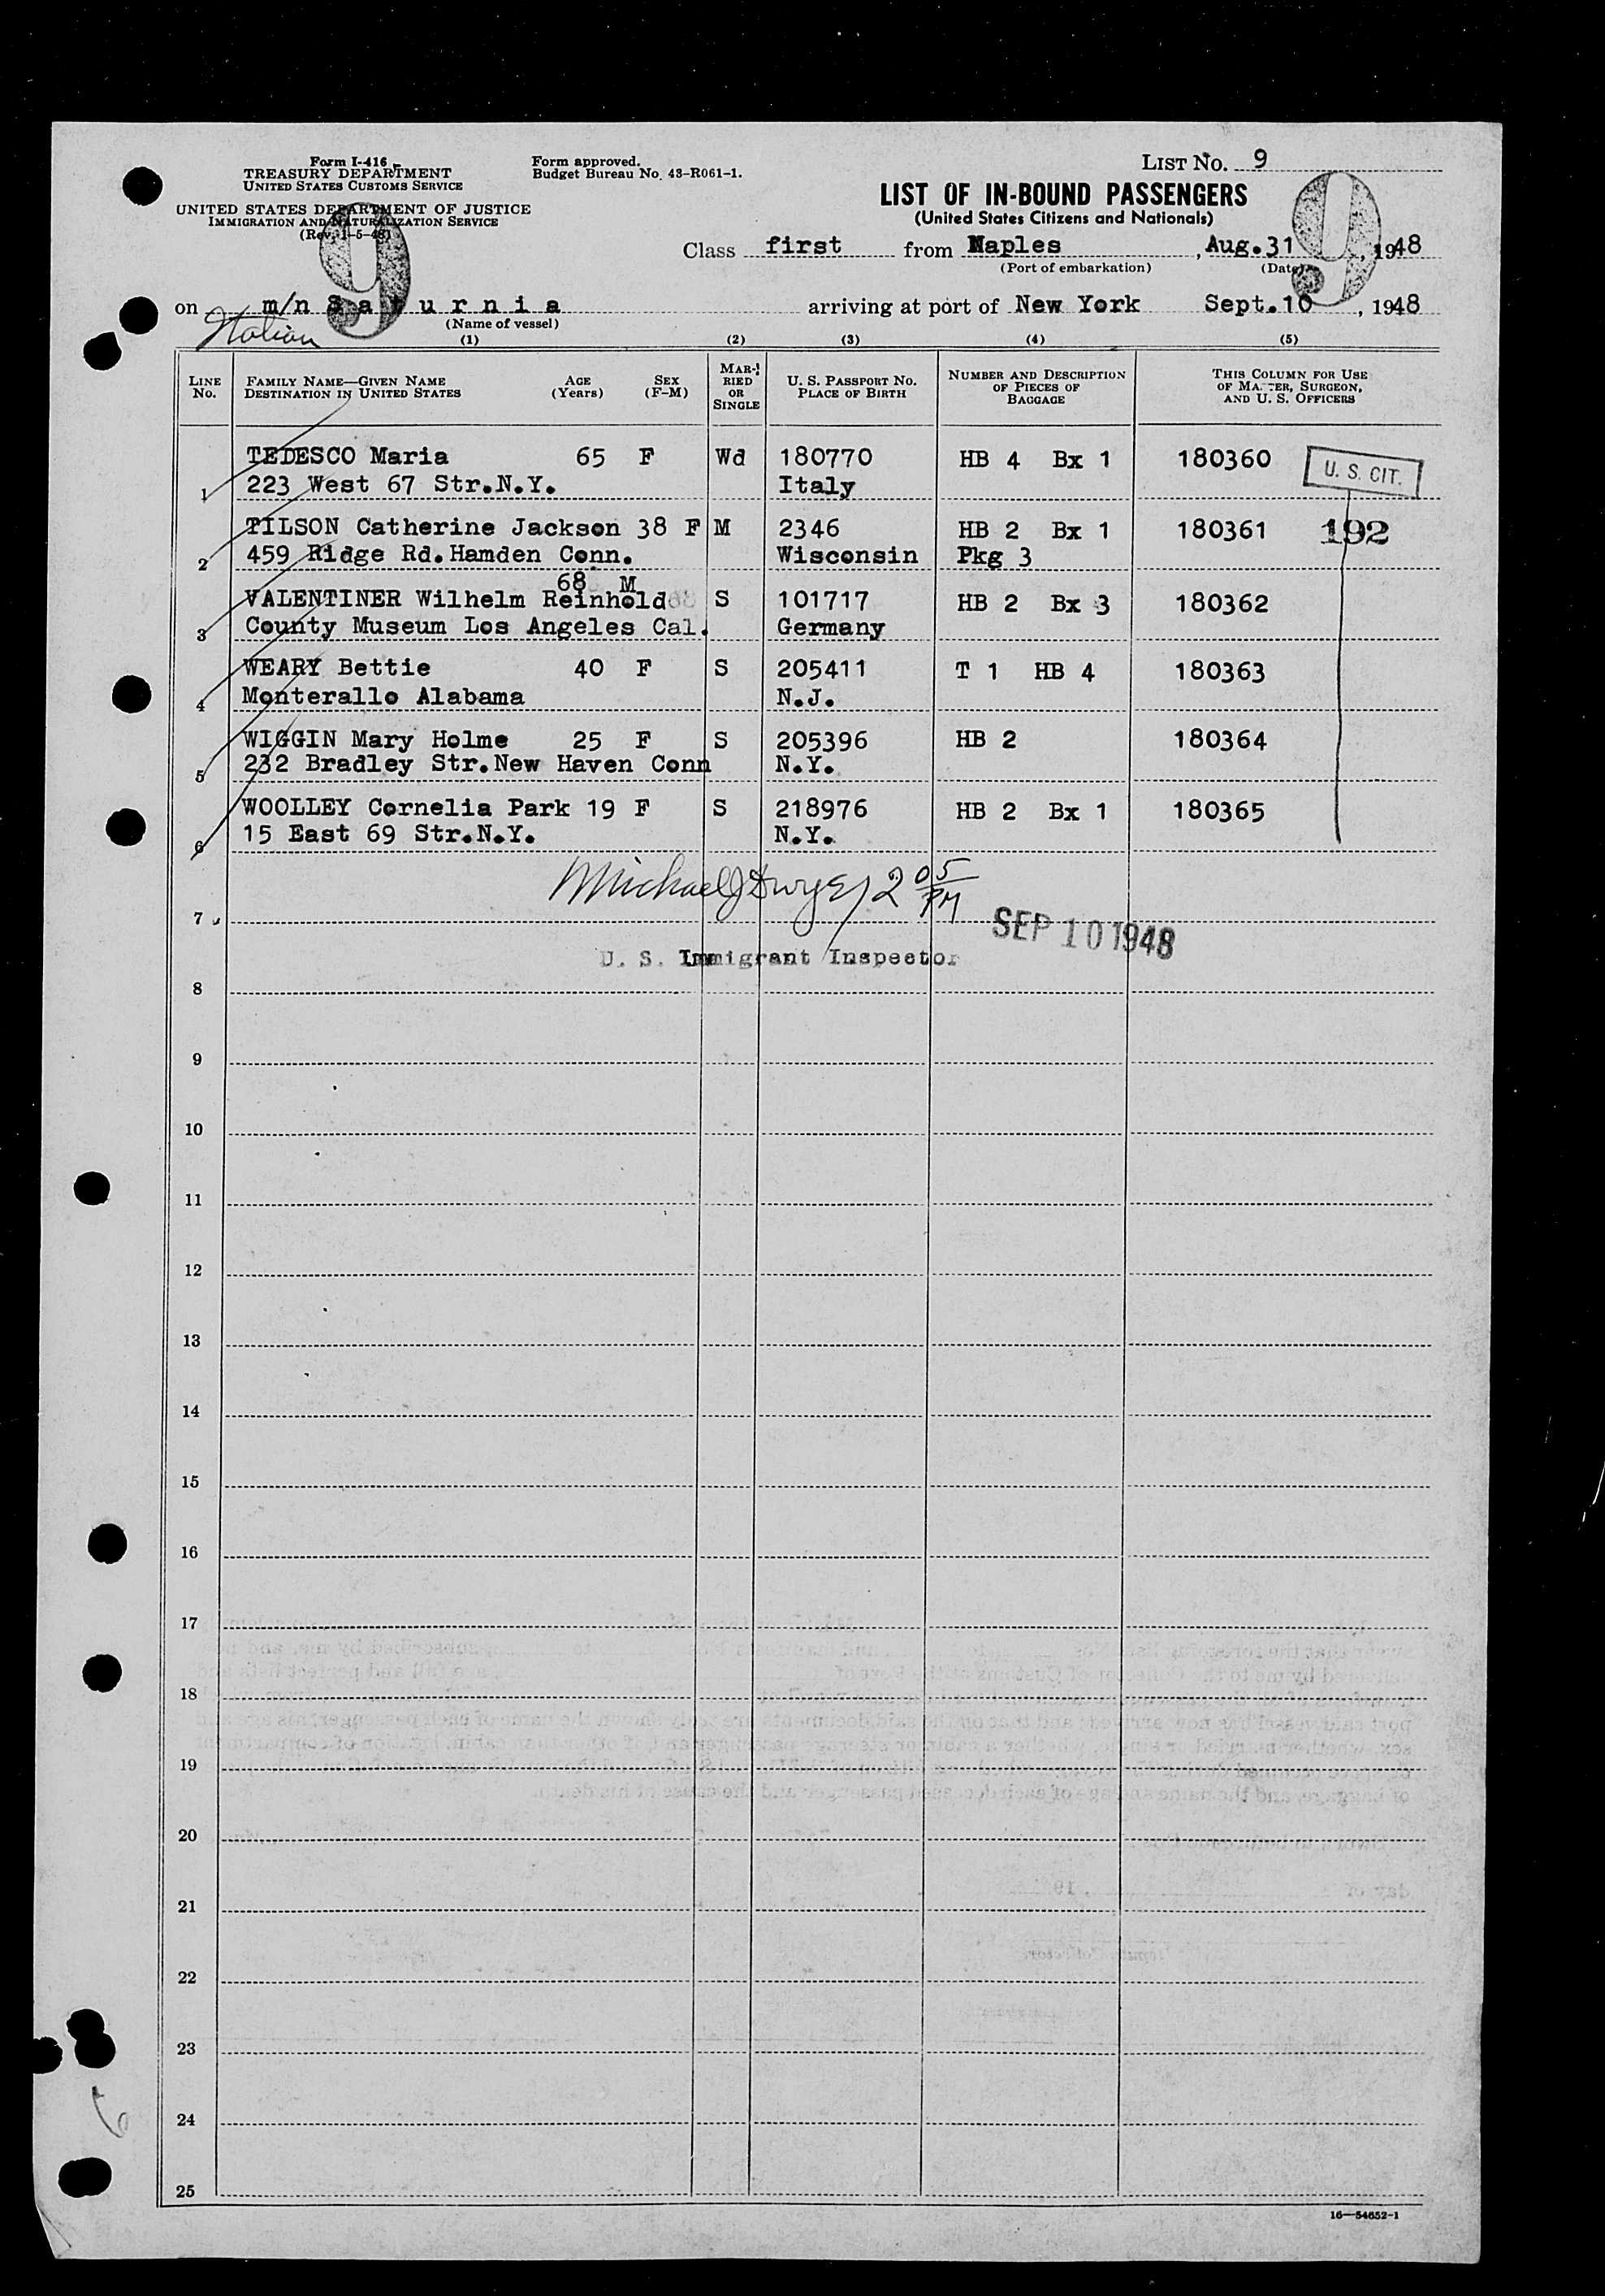 Form I-416
TREASURY DEPARTMENT
UNITED STATES CUSTOMS SERVICE
UNITED STATES DEPARTMENT OF JUSTICE
IMMIGRATION AND NATURALIZATION SERVICE
(Rev. 1-5-48)
Form approved.
Budget Bureau No. 43-R061-1.
LIST NO. 9
LIST OF IN-BOUND PASSENGERS
(United States Citizens and Nationals)
9
9
Class first from Naples, Aug. 31, 1948
(Port of embarkation) (Date)
on m/n S a t u r n i a arriving at port of New York Sept. 10, 1948
(Name of vessel)
Italian
(1) (2) (3) (4) (5)
LINE No. FAMILY NAME—GIVEN NAME DESTINATION IN UNITED STATES AGE (Years) SEX (F-M) MARRIED OR SINGLE U. S. PASSPORT NO. PLACE OF BIRTH NUMBER AND DESCRIPTION OF PIECES OF BAGGAGE THIS COLUMN FOR USE OF MASTER, SURGEON, AND U. S. OFFICERS
TEDESCO Maria 65 F Wd 180770 HB 4 Bx 1 180360 U. S. CIT.
1 223 West 67 Str.N.Y. Italy
TILSON Catherine Jackson 38 F M 2346 HB 2 Bx 1 180361 192
2 459 Ridge Rd.Hamden Conn. Wisconsin Pkg 3
68 M
VALENTINER Wilhelm Reinhold S 101717 HB 2 Bx 3 180362
3 County Museum Los Angeles Cal. Germany
WEARY Bettie 40 F S 205411 T 1 HB 4 180363
4 Monterallo Alabama N.J.
WIGGIN Mary Holme 25 F S 205396 HB 2 180364
5 232 Bradley Str.New Haven Conn N.Y.
WOOLLEY Cornelia Park 19 F S 218976 HB 2 Bx 1 180365
6 15 East 69 Str.N.Y. N.Y.
Michael J Dwyer 2 05 PM
7
SEP 10 1948
U. S. Immigrant Inspector
8
9
10
11
12
13
14
15
16
17
18
19
20
21
22
23
24
25
6
16—54652-1